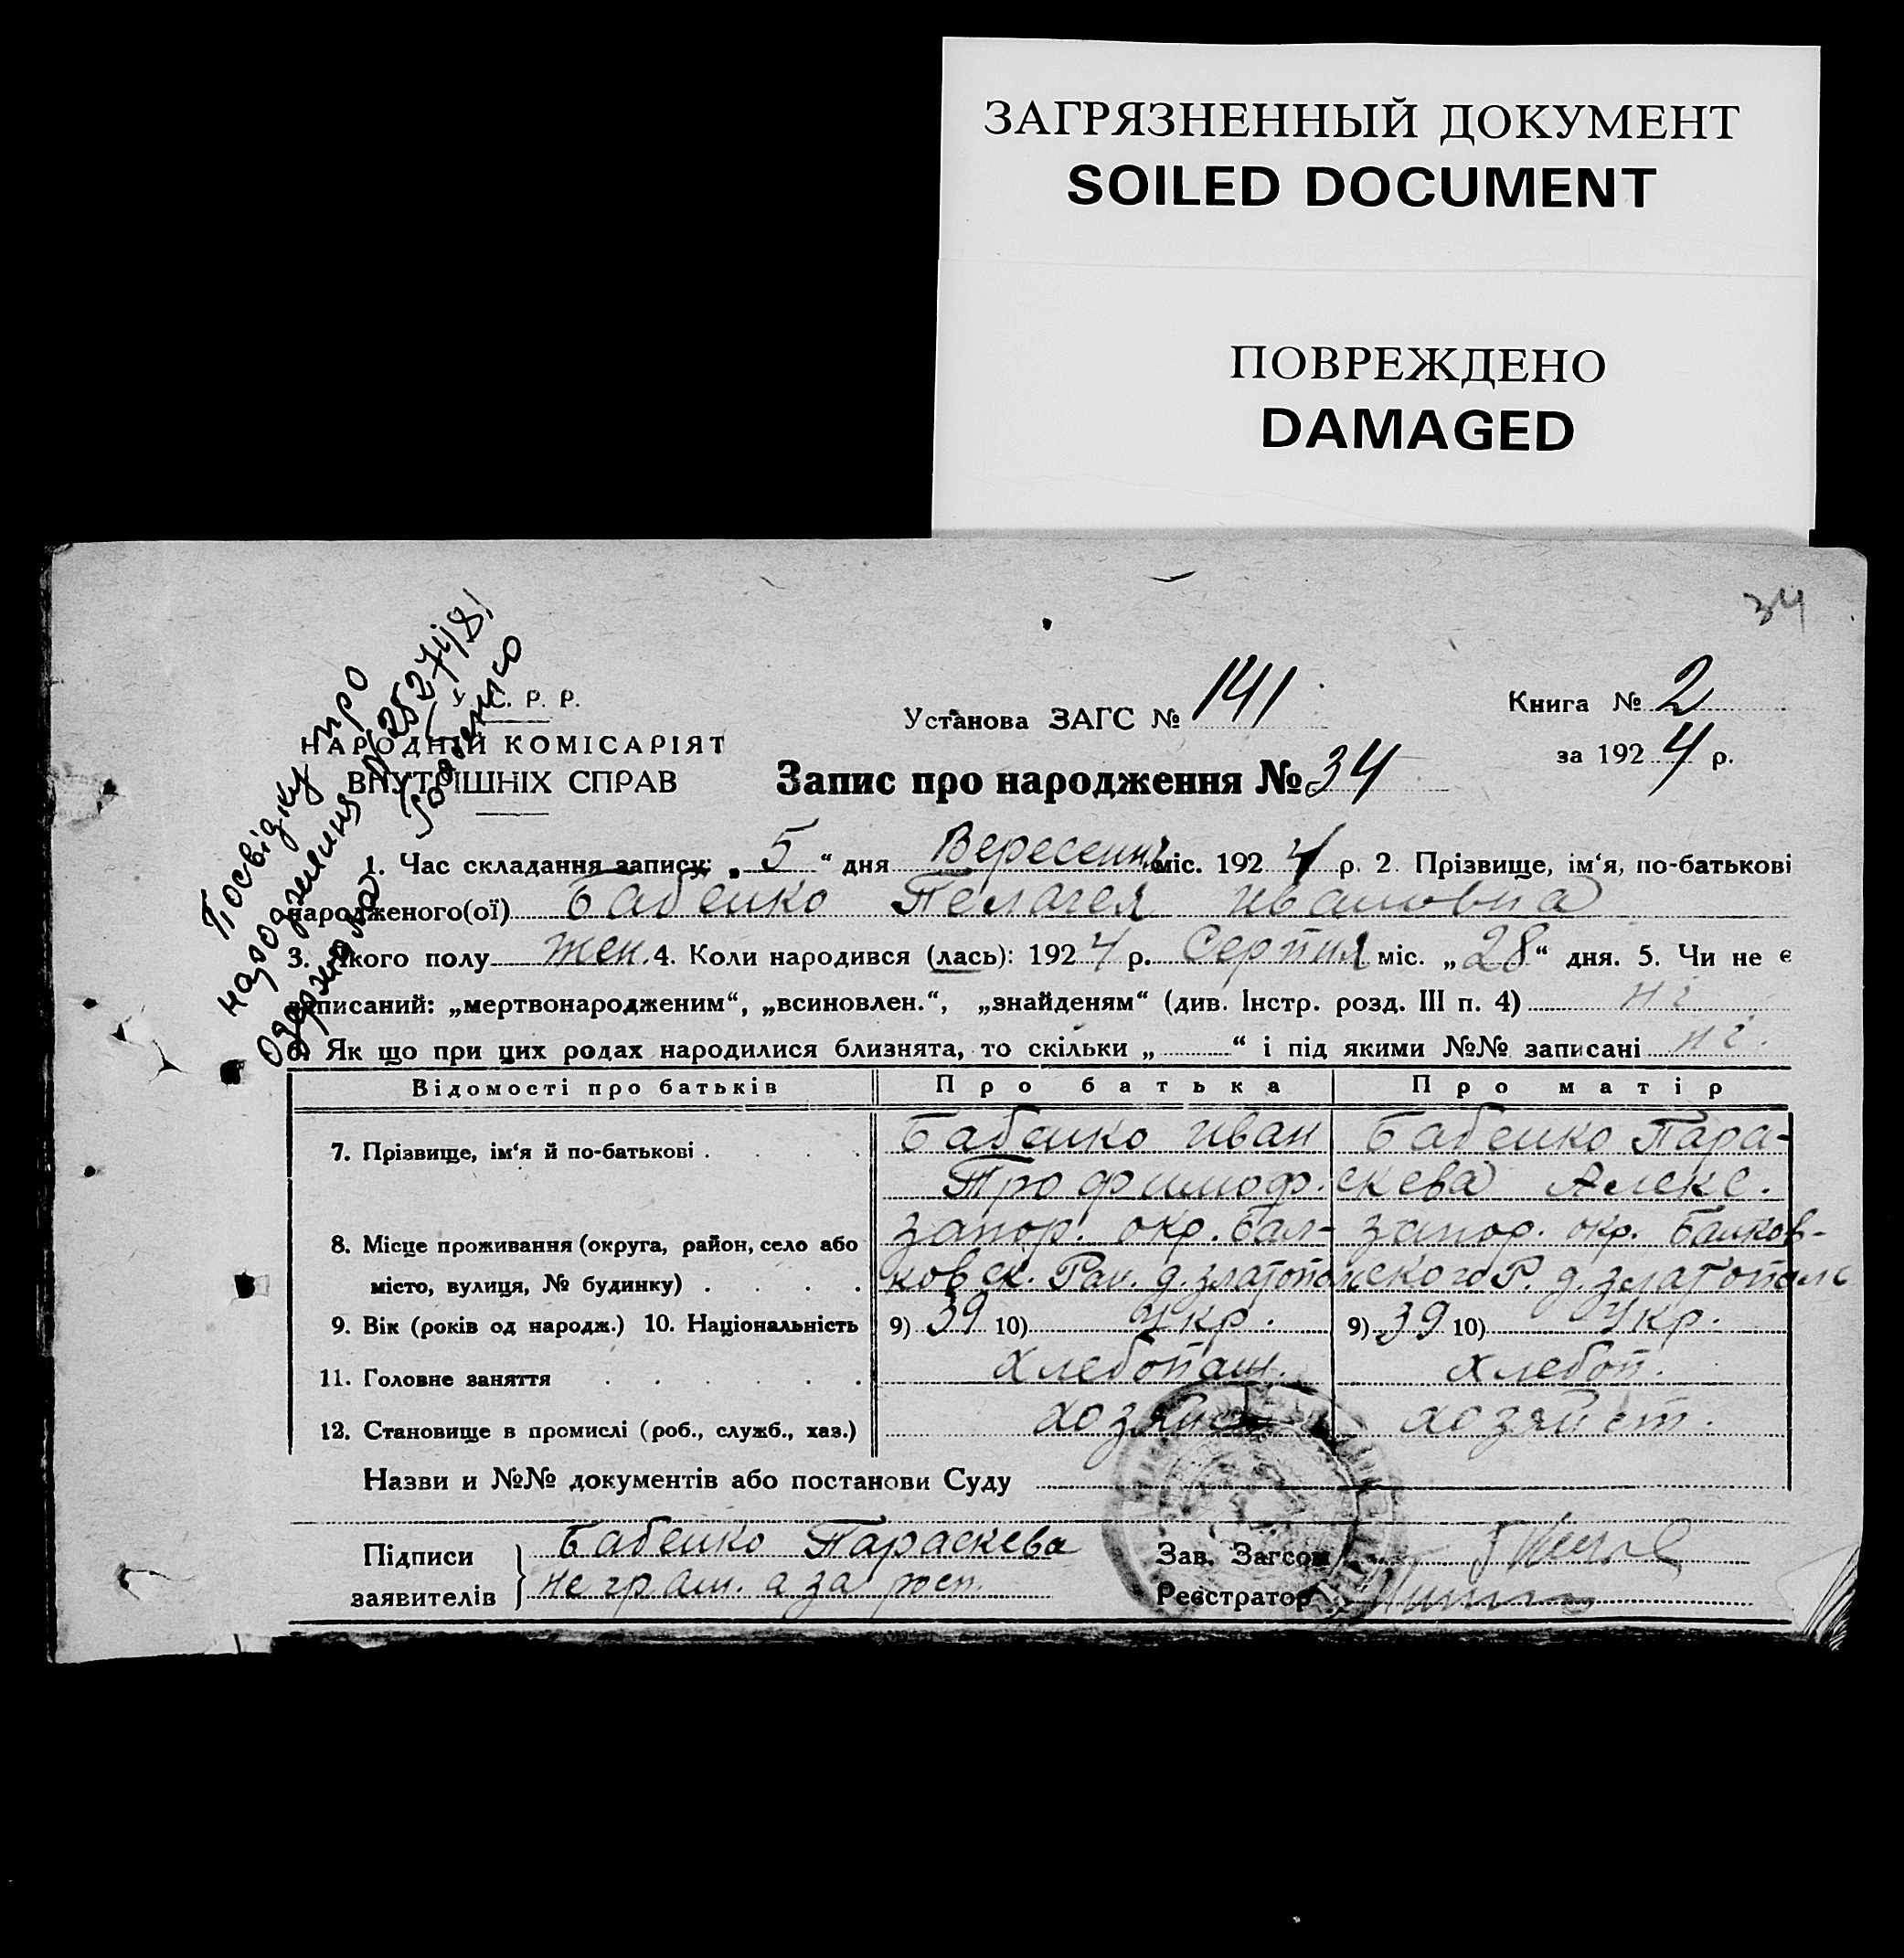 ЗАГРЯЗНЕННЫЙ ДОКУМЕНТ
SOILED DOCUMENT
ПОВРЕЖДЕНО
DAMAGED
34
Посвідку про
народження № 2527418!
одержала
У. С. Р. Р.
НАРОДНІЙ КОМІСАРІЯТ
ВНУТРІШНІХ СПРАВ
Установа ЗАГС № 141
Книга № 2
за 1924 р.
Запис про народження № 34
1. Час складання запису: „5“ дня Вересення міс. 1924 р. 2. Прізвище, ім‘я, по-батькові
народженого(ої) Бабенко Пелагея Ивановна
3. Якого полу жен. 4. Коли народився (лась): 1924 р. Серпня міс. „28“ дня. 5. Чи не є
записаний: „мертвонародженим“, „всиновлен.“, „знайденям“ (див. Інстр. розд. III п. 4) ні
6. Як що при цих родах народилися близнята, то скільки „ “ і під якими №№ записані ні.
Відомості про батьків Про батька Про матір
7. Прізвище, ім‘я й по-батькові . . . . Бабенко Иван Бабенко Пара-
Трофимоф. скева Алекс.
8. Місце проживання (округа, район, село або запор. окр. Бал- запор. окр. Балков-
місто, вулиця, № будинку) . . . . ковск. Рай. д. златополь ского Р. д. златополь
9. Вік (років од народж.) 10. Національність 9) 39 10) Укр. 9) 39 10) Укр.
11. Головне заняття . . . . . . хлебопаш. хлебоп.
12. Становище в промислі (роб., служб., хаз.) хозяйст. хозяйст.
Назви и №№ документів або постанови Суду
Підписи Бабенко Параскева Зав. Загсом
заявителів неграм. а за росп. Реєстратор